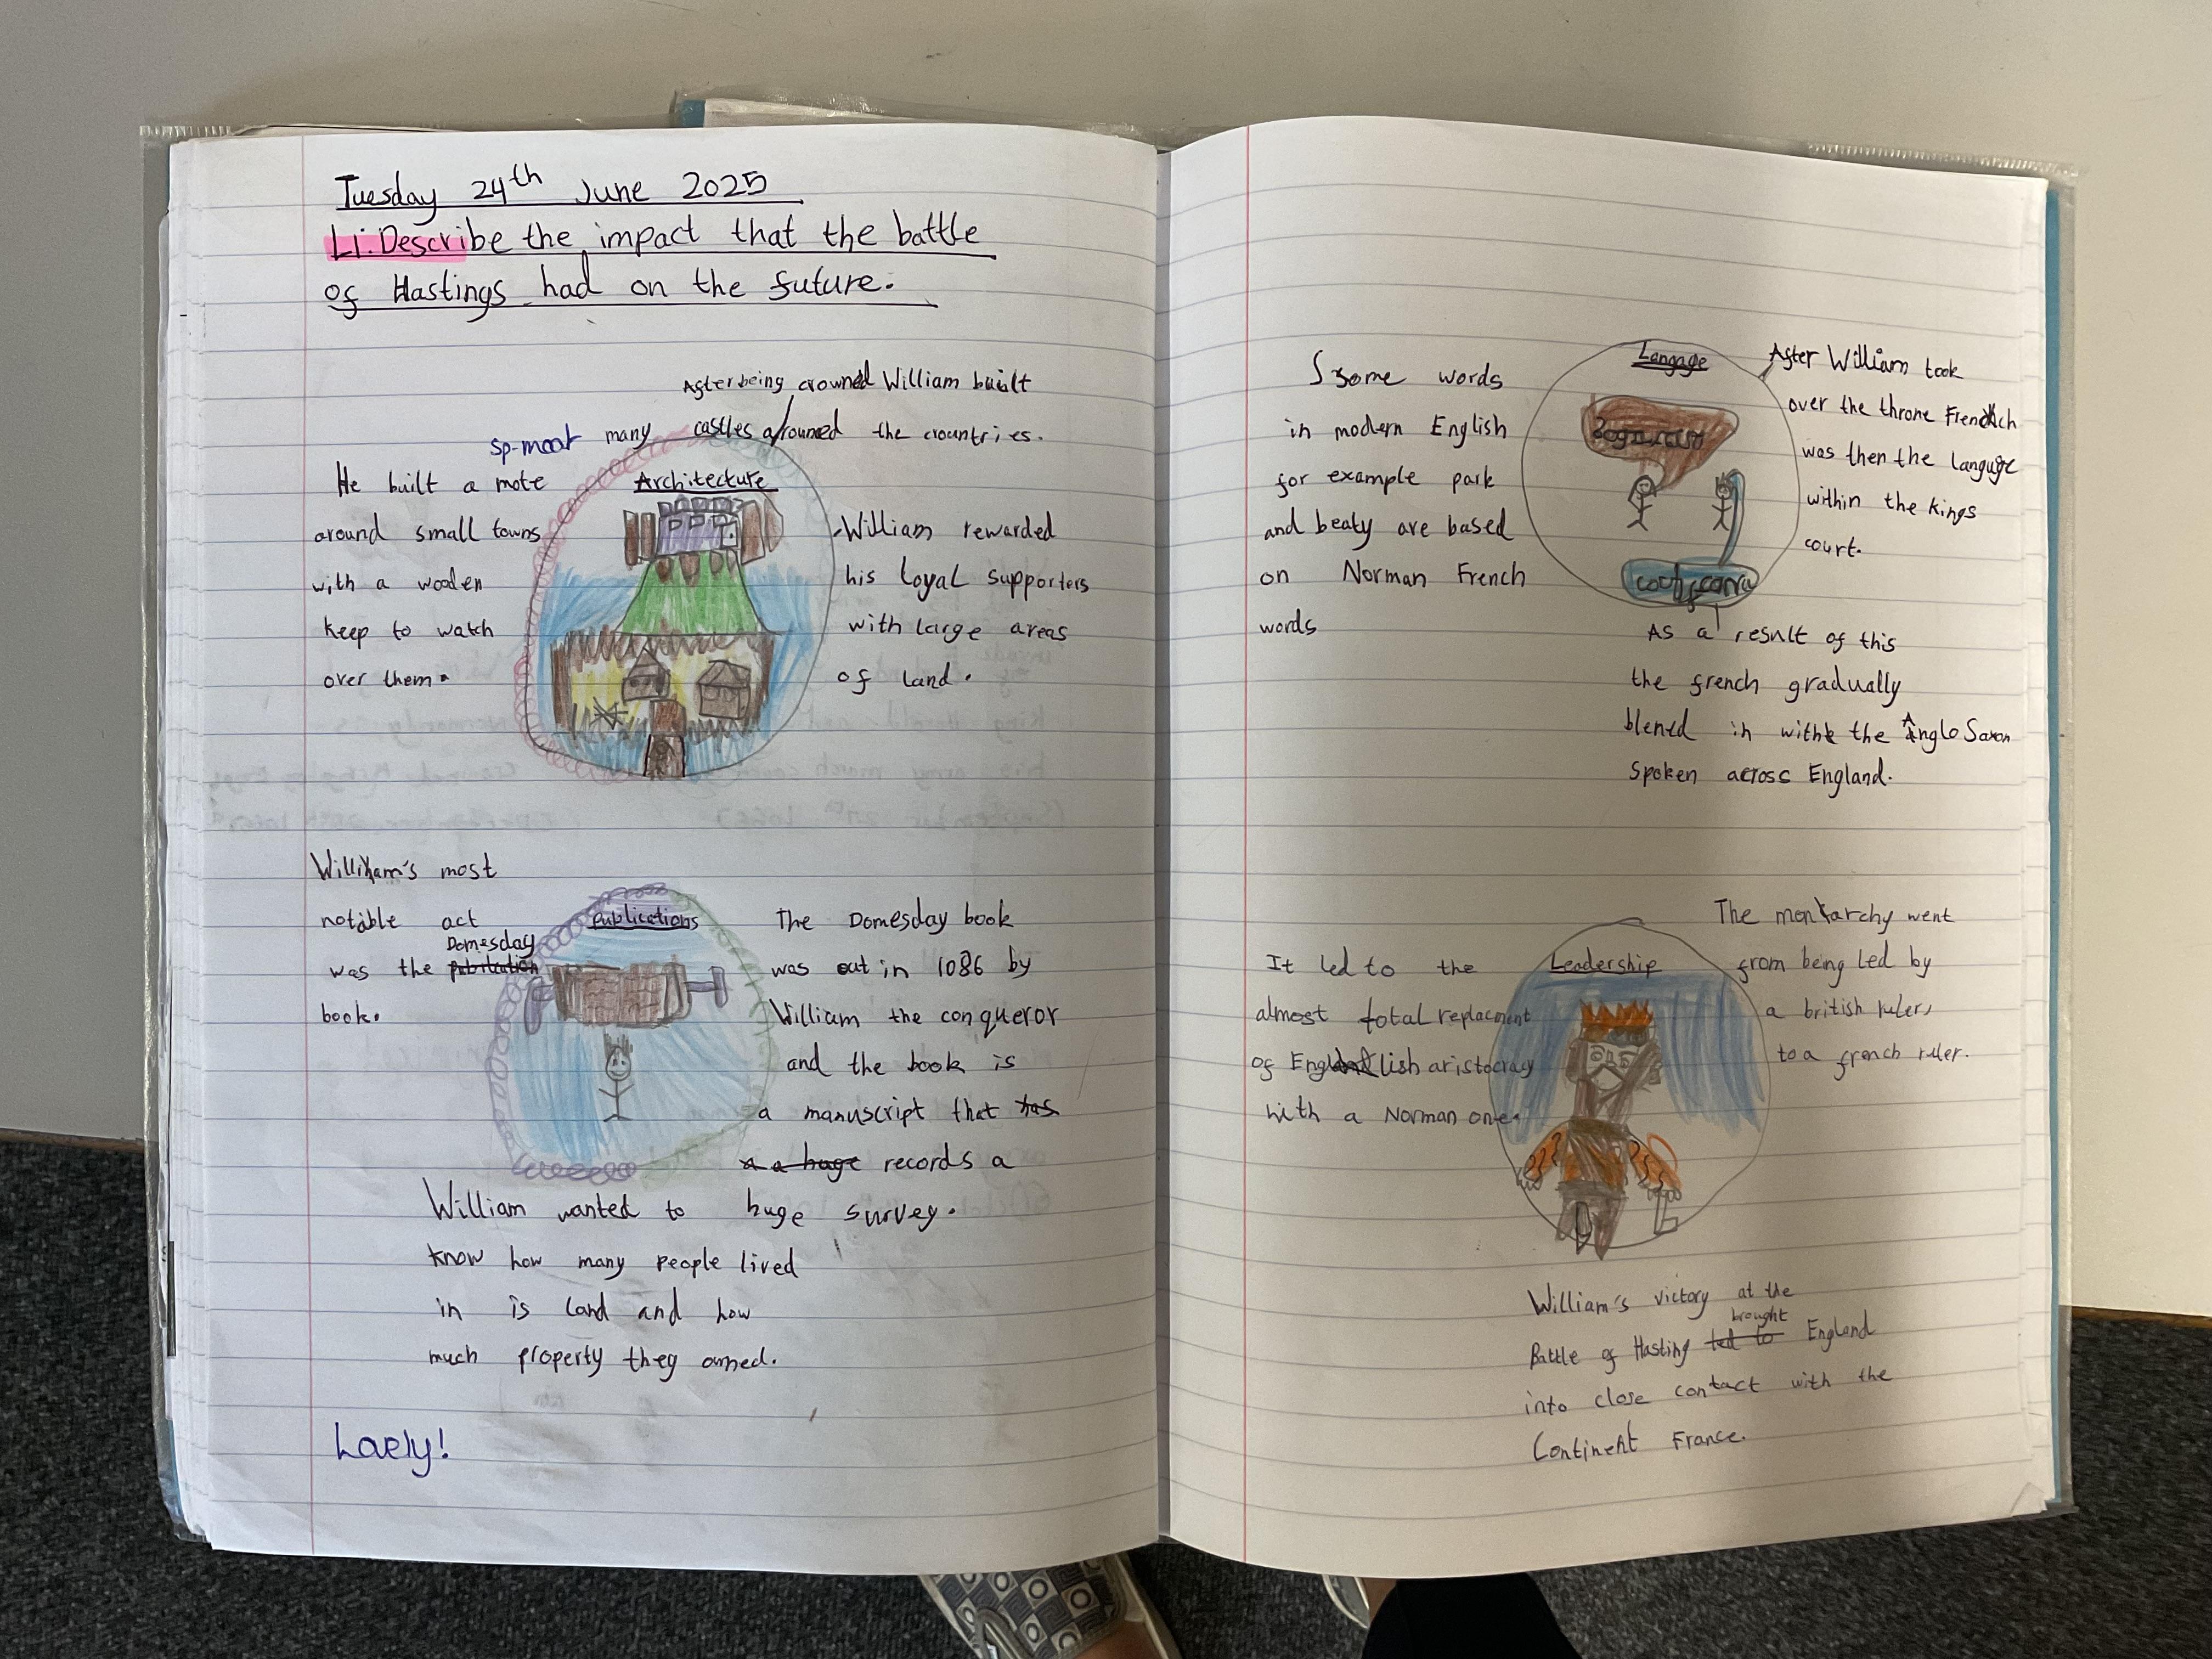 Tuesday 24th June 2025
Li: Describe the impact that the battle
of Hastings had on the future.
After being crowned William built
many castles arouned the countries.
sp-moat
He built a mote
around small towns
with a wooden
keep to watch
over them.
Architecture
William rewarded
his loyal supporters
with large areas
of land.
William's most
notable act
Domesday
was the publication
book.
Publications
The Domesday book
was out in 1086 by
William the conqueror
and the book is
a manuscript that has
a a huge records a
huge survey.
William wanted to
know how many people lived
in is land and how
much property they owned.
Lovely!
Some words
in modern English
for example park
and beaty are based
on Norman French
words
Langage
After William took
over the throne French
was then the languge
within the kings
court.
As a result of this
the french gradually
blened in with the Anglo Saxon
spoken across England.
It led to the
almost total replacment
of English aristocracy
with a Norman one.
Leadership
The monarchy went
from being led by
a british ruler,
to a french ruler.
William's victory at the
brought
Battle of Hasting led to England
into close contact with the
Continent France.